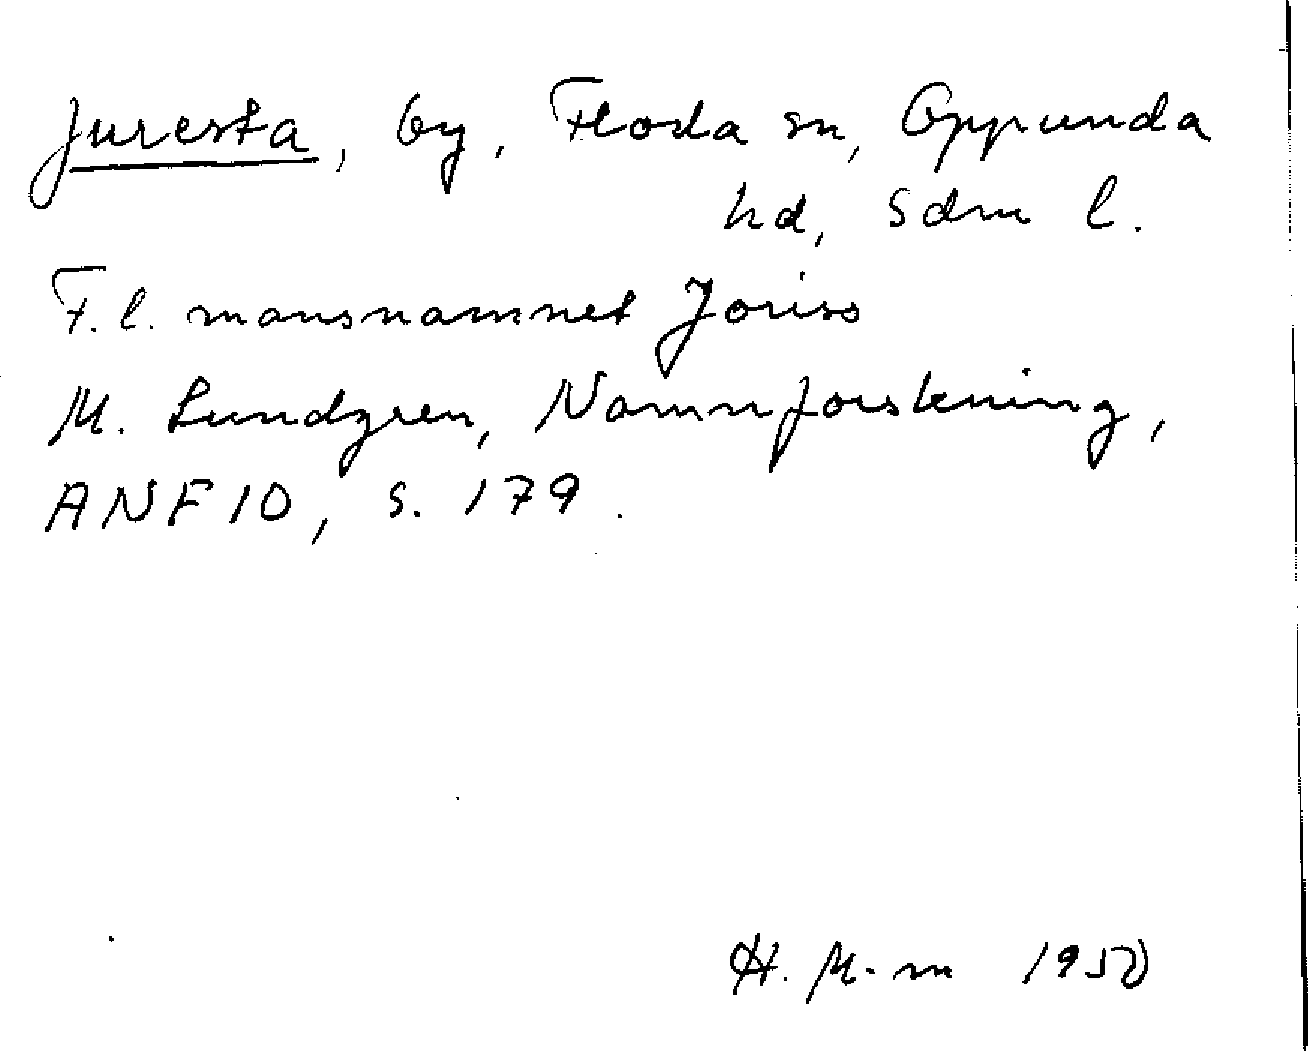 Juresta, by, Floda sn, Oppunda
hd, Sdm l.
F.l. mansnamnet Joriss
M. Lundgren, Namnforskning,
ANF 10, s. 179.
H. M-m 1950